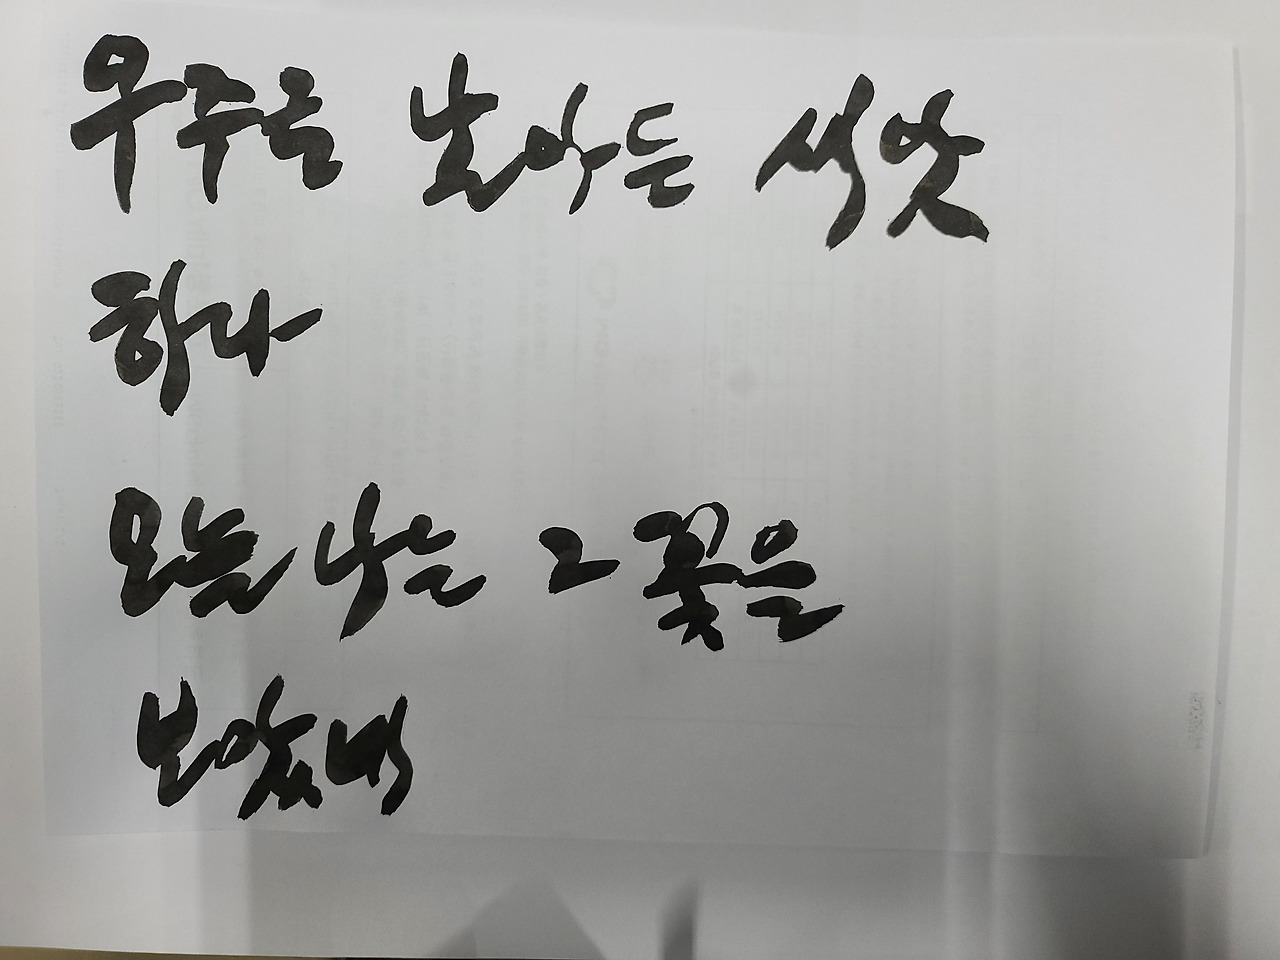 우주를 날아든 씨앗
하나
오늘 나는 그 꽃을
보았네